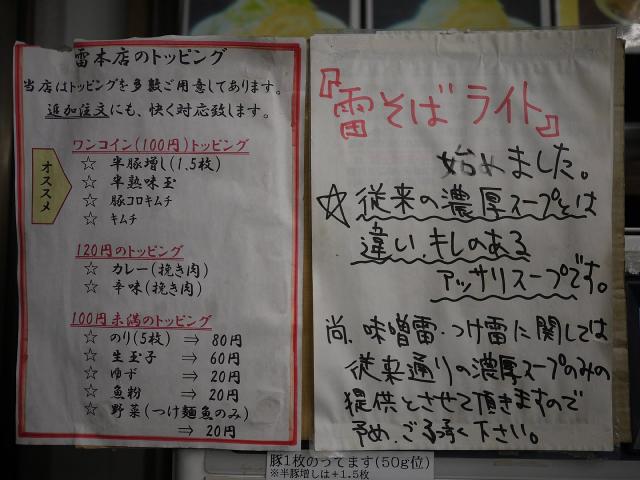 雷本店のトッピング
当店はトッピングを多数ご用意してあります。
追加注文にも、快く対応致します。
オススメ
ワンコイン(100円)トッピング
☆ 半豚増し(1.5枚)
☆ 半熟味玉
☆ 豚コロキムチ
☆ キムチ
120円のトッピング
☆ カレー(挽き肉)
☆ 辛味(挽き肉)
100円未満のトッピング
☆ のり(5枚) ⇒ 80円
☆ 生玉子 ⇒ 60円
☆ ゆず ⇒ 20円
☆ 魚粉 ⇒ 20円
☆ 野菜(つけ麺魚のみ)
⇒ 20円
『雷そば ライト』
始めました。
☆従来の濃厚スープとは
違い、キレのある
アッサリスープです。
尚、味噌雷・つけ雷に関しては
従来通りの濃厚スープのみの
提供とさせて頂きますので
予め、ご了承下さい。
豚1枚のってます(50g位)
※半豚増しは+1.5枚